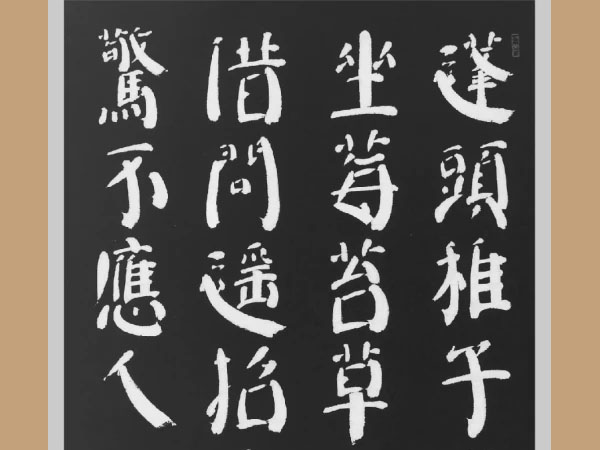 蓬頭稚子
坐莓苔草
借問遥招
驚不應人